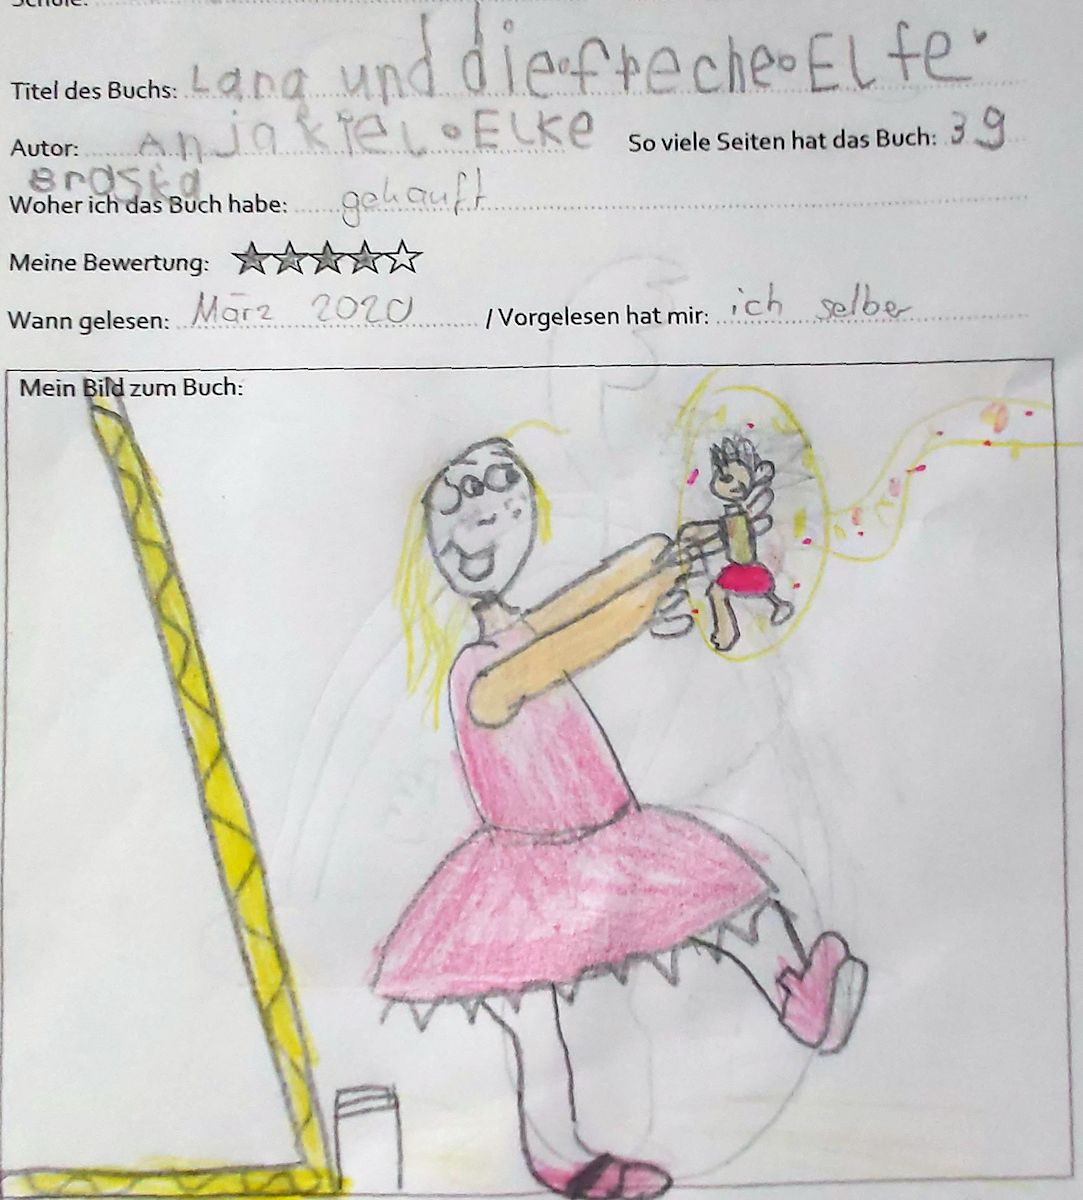 Schule:
Titel des Buchs: Lana und die freche Elfe
Autor: Anja Kiel Elke
Broska
So viele Seiten hat das Buch: 39
Woher ich das Buch habe: gekauft
Meine Bewertung:
Wann gelesen: März 2020 / Vorgelesen hat mir: ich selber
Mein Bild zum Buch: